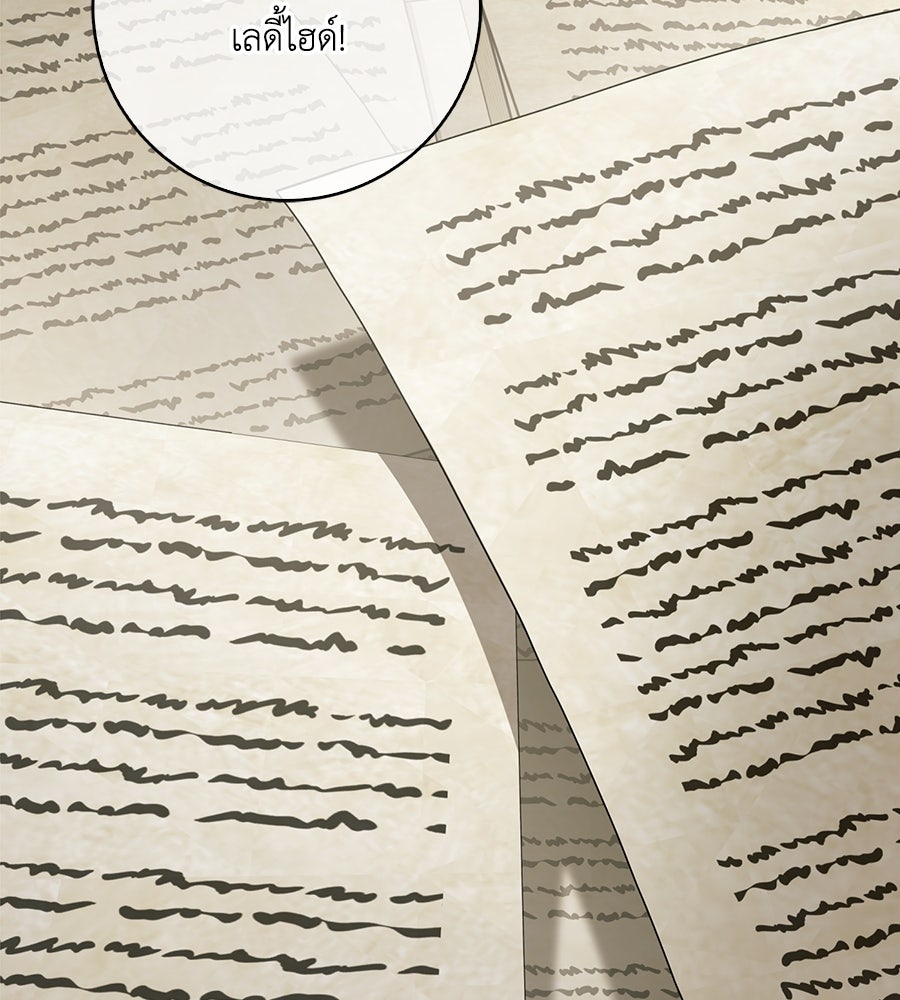 เลดี้ไฮด์!